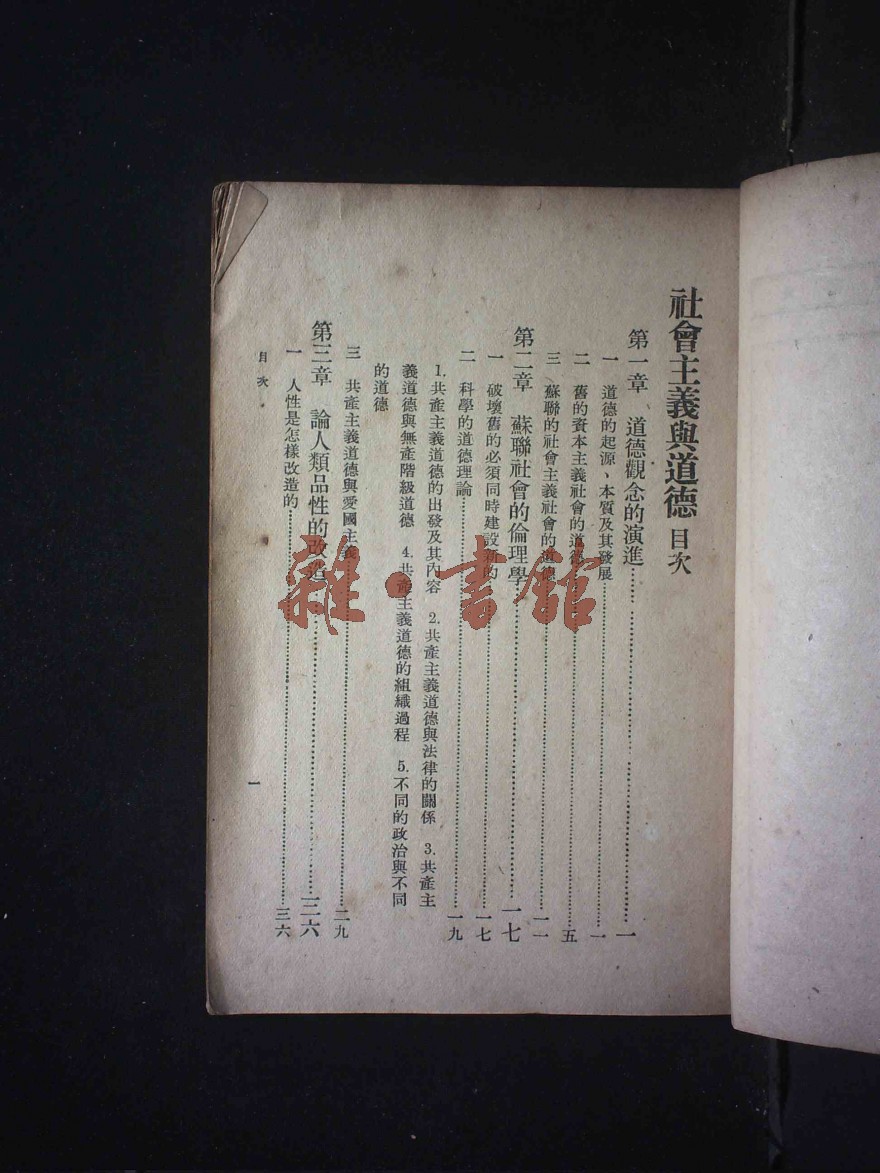 社會主義與道德 目次
第一章 道德觀念的演進……一
一 道德的起源、本質及其發展……一
二 舊的資本主義社會的道德……五
三 蘇聯的社會主義社會的道德……一一
第二章 蘇聯社會的倫理學……一七
一 破壞舊的必須同時建設新的……一七
二 科學的道德理論……一九
1. 共產主義道德的出發及其內容 2. 共產主義道德與法律的關係 3. 共產主
義道德與無產階級道德 4. 共產主義道德的組織過程 5. 不同的政治與不同
的道德
三 共產主義道德與愛國主義……二九
第三章 論人類品性的改造……三六
一 人性是怎樣改造的……三六
目次
一
雜·書館